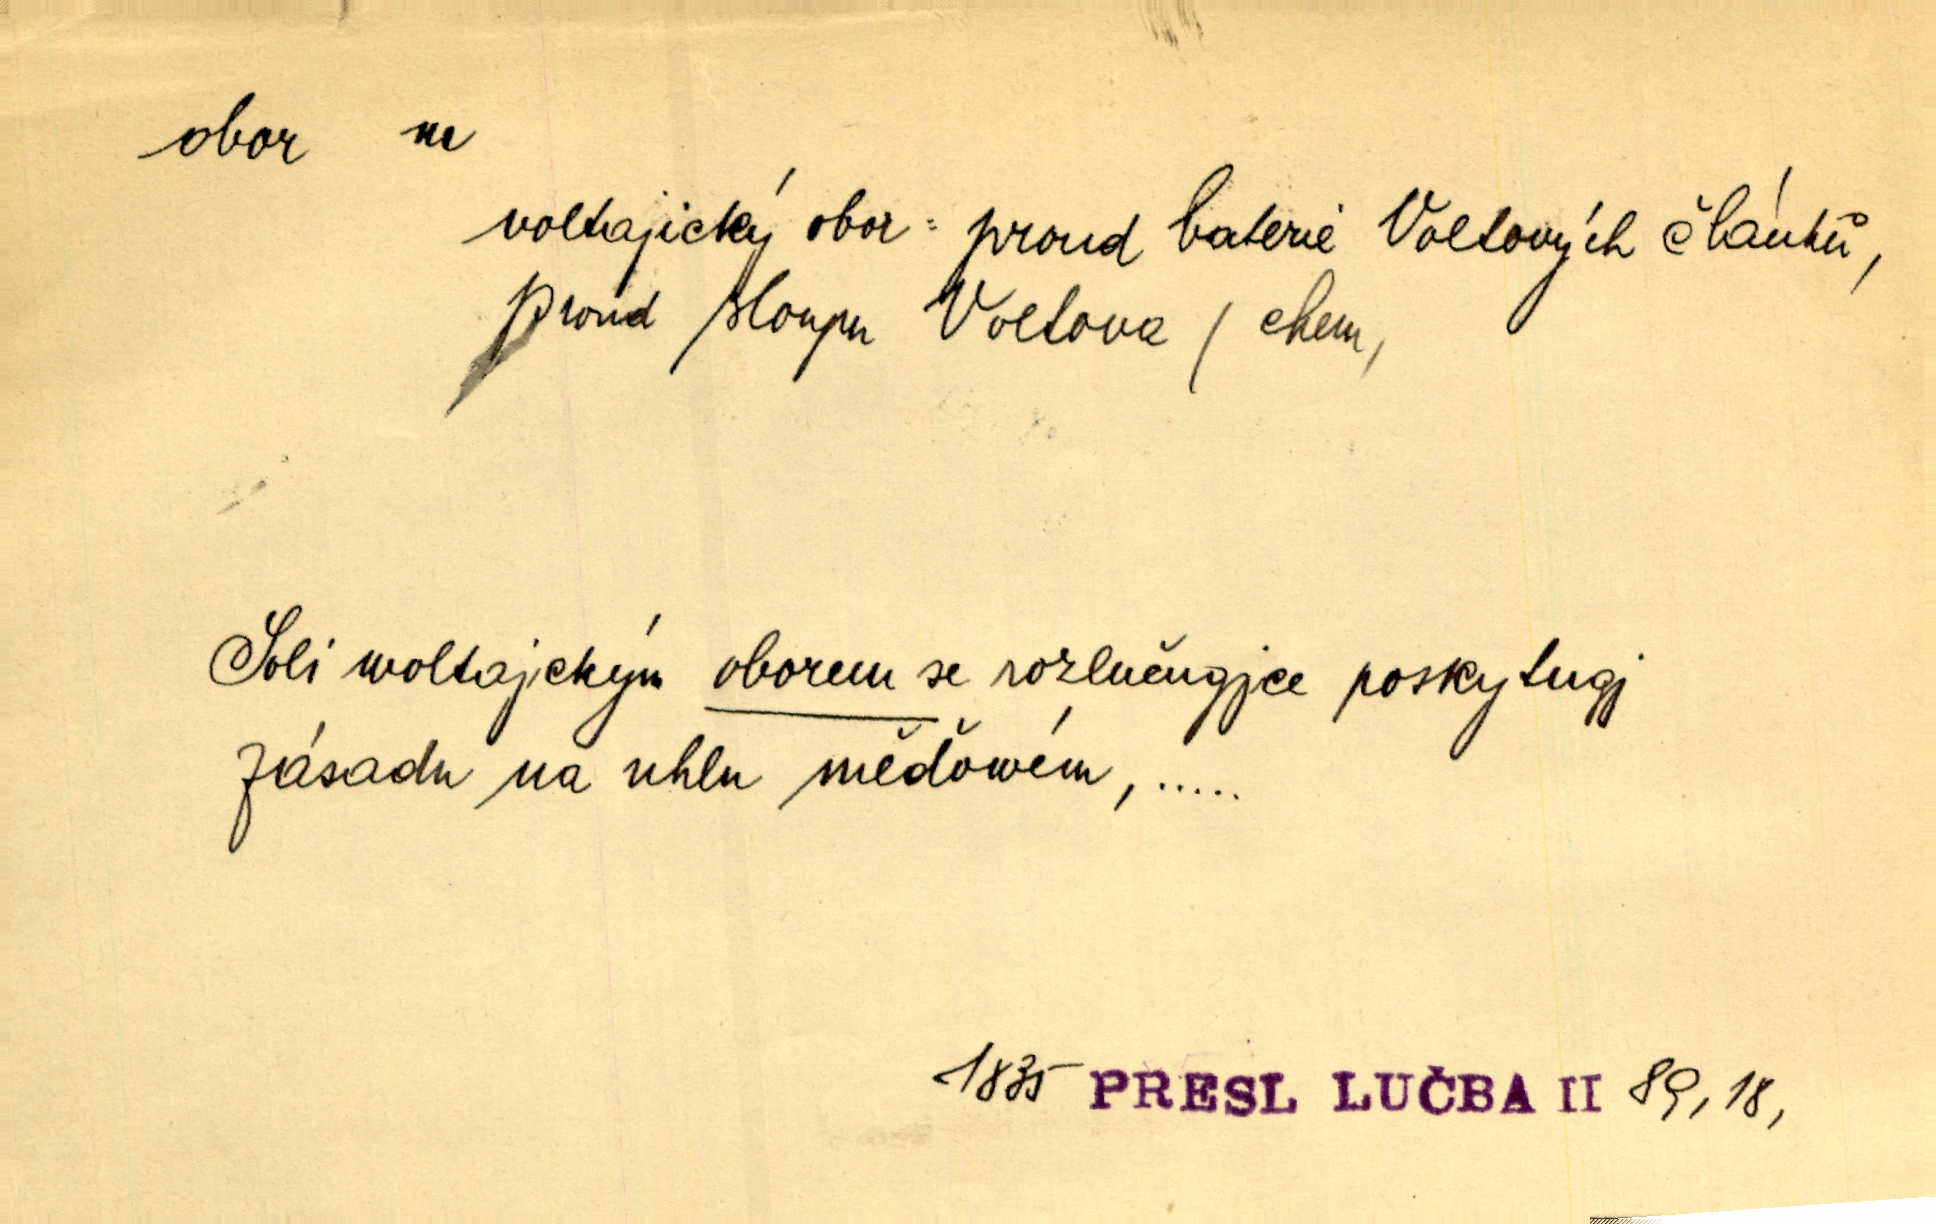 obor m
voltajický obor = proud baterie Voltových článků,
proud sloupu Voltova / chem,
Soli woltajckým oborem se rozlučugjce poskytugj
zásadu na uhlu měďowém, .....
1835 PRESL LUČBA II 89, 18,